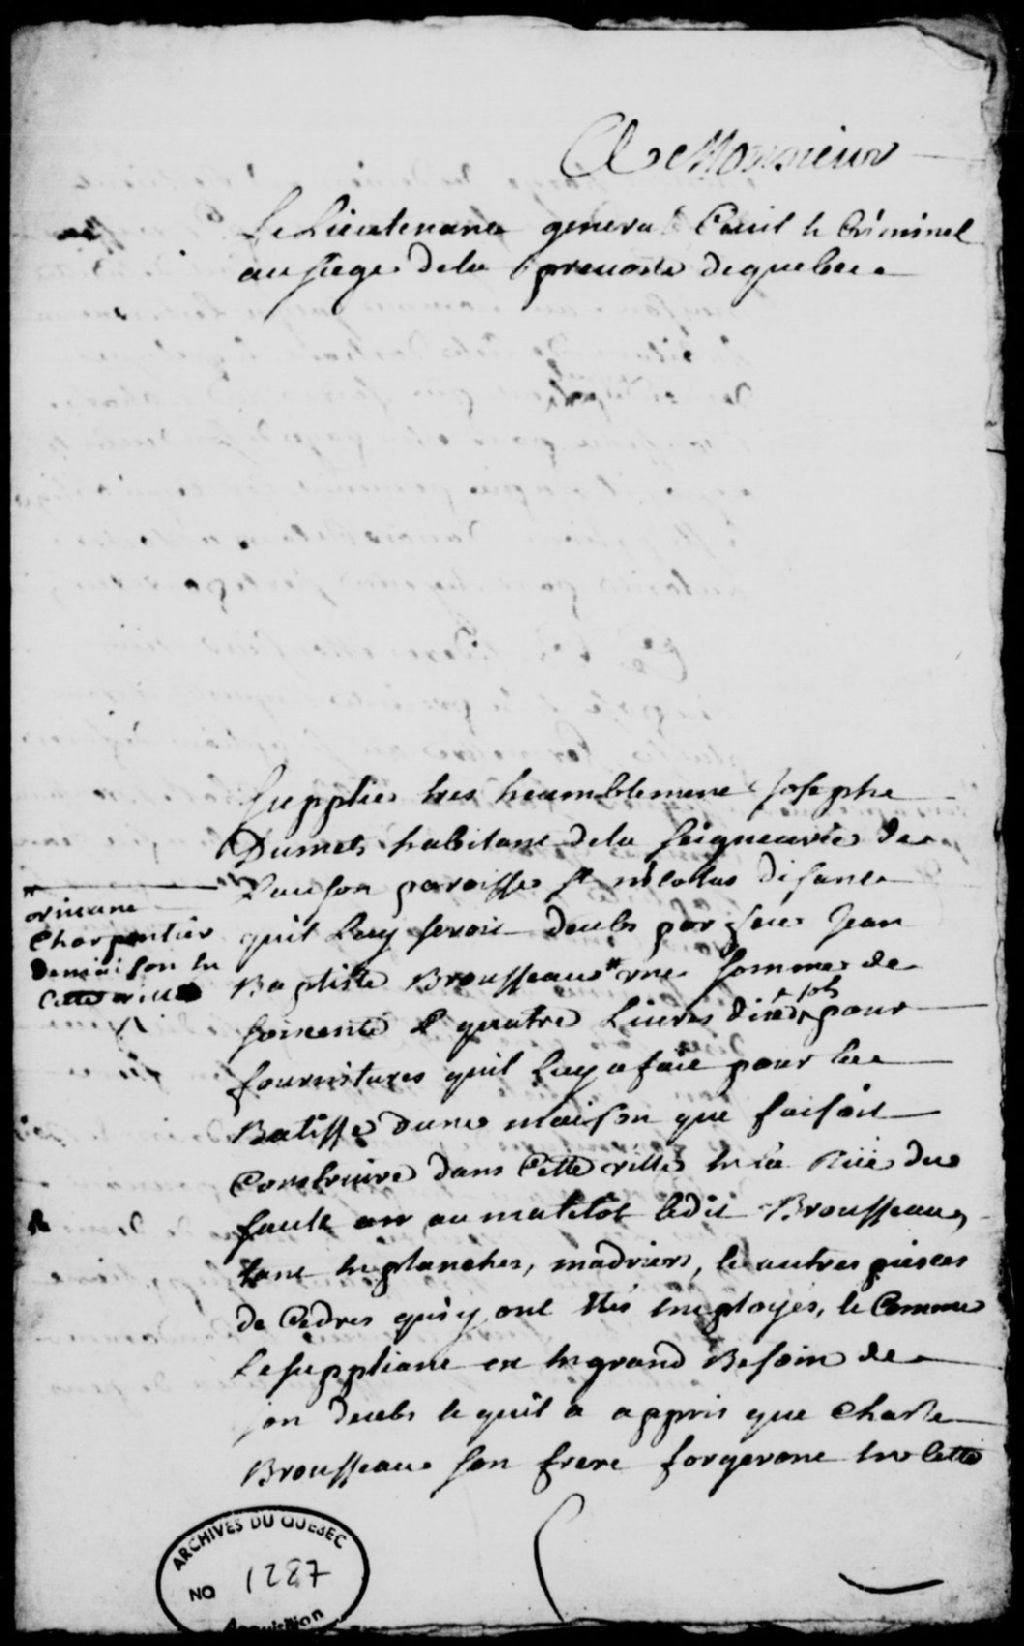 A Monsieur
Le Lieutenant general Ciuil et Criminel
au siege dela preuosté dequebec
Supplie tres heumblement Josephe
Dumets habitant dela seigneurie de
Lauson paroisse st nicollas disant
quil Luy seroit deubs par feu Jean
Baptiste Brousseau une somme de
soixente et quatre Liures dix sols pour
fournitures quil luy a fait pour la
Batisse dune maison que faisoit
Construire dans Cette ville en la Rüe du
sault au matelot ledit Brousseau,
tant en planches, madriers, et autres pieces
de Cedres qui y ont étés employes, et Comme
Le suppliant est en grand Besoin de
son deubs et quil a appris que Charle
Brousseau son frere forgeront en Cette
Charpentier
Cette ville
ARCHIVES DU QUEBEC
NO 1287
Acquisition